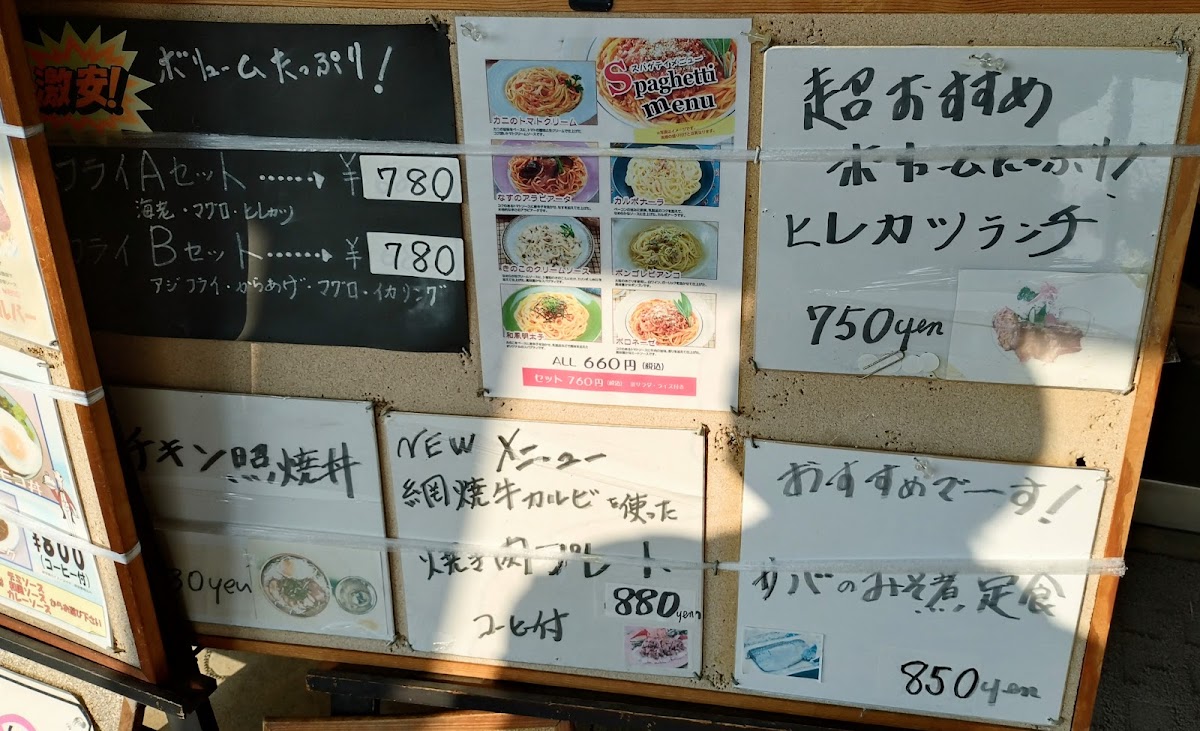 激安!
ボリュームたっぷり!
フライAセット ……▸ ¥780
海老・マグロ・ヒレカツ
フライBセット ……▸ ¥780
アジフライ・からあげ・マグロ・イカリング
スパゲティメニュー
Spaghetti
menu
カニのトマトクリーム
なすのアラビアータ
カルボナーラ
きのこのクリームソース
ボンゴレビアンコ
和風明太子
ボロネーゼ
ALL 660円(税込)
セット 760円(税込)
超おすすめ
ボリュームたっぷり!
ヒレカツランチ
750yen
チキン照焼丼
80yen
NEW メニュー
網焼牛カルビを使った
焼き肉プレート
880yen
コーヒー付
おすすめでーす!
サバのみそ煮定食
850yen
¥800
(コーヒー付)
カレーソース